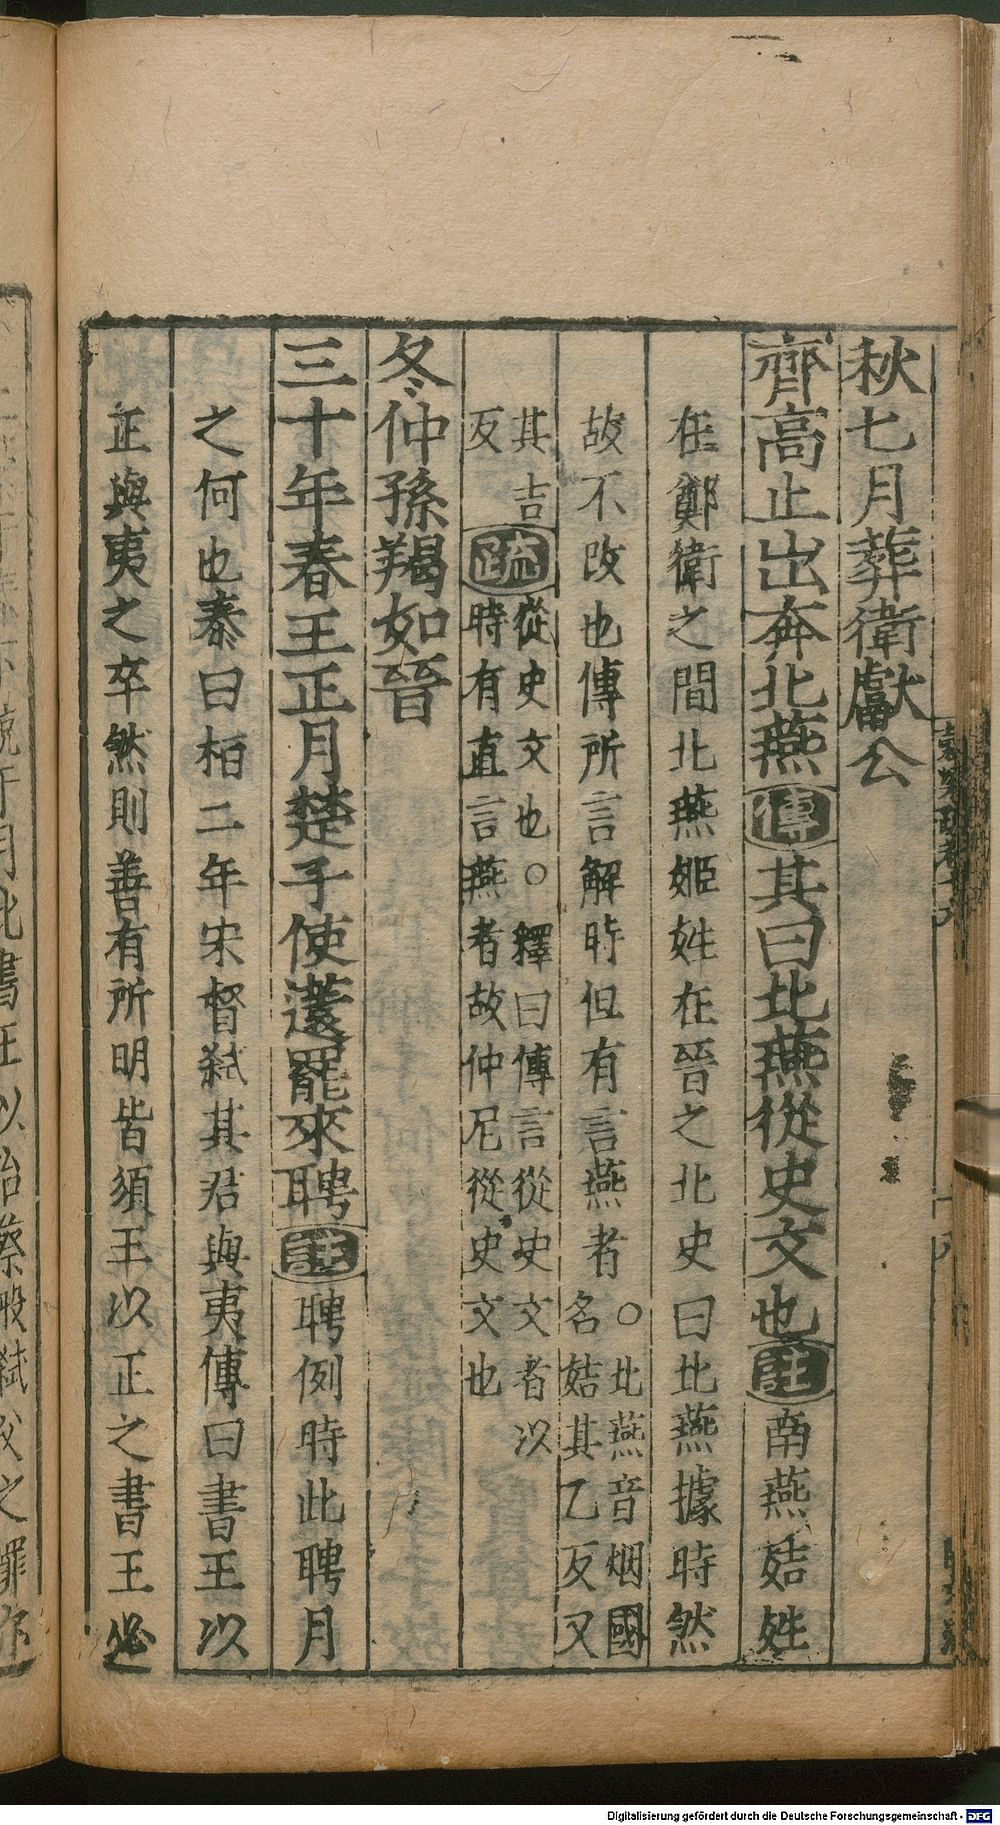 秋七月葬衛獻公
齊高止出奔北燕傳其曰北燕從史文也註南燕姞姓
在鄭衛之間北燕姬姓在晉之北史曰北燕據時然
故不改也傳所言解時但有言燕者○北燕音烟國
名姞其乙反又
其吉
反疏從史文也○釋曰傳言從史文者以
時有直言燕者故仲尼從史文也
冬仲孫羯如晉
三十年春王正月楚子使薳罷來聘註聘例時此聘月
之何也泰曰柏二年宋督弑其君與夷傳曰書王以
正與夷之卒然則善有所明皆須王以正之書王必
Digitalisierung gefördert durch die Deutsche Forschungsgemeinschaft - DFG